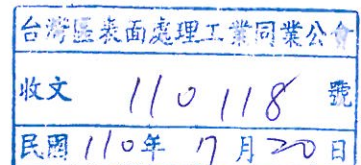 台灣區表面處理工業同業公會
收文 110118 號
民國 110年 7月20日